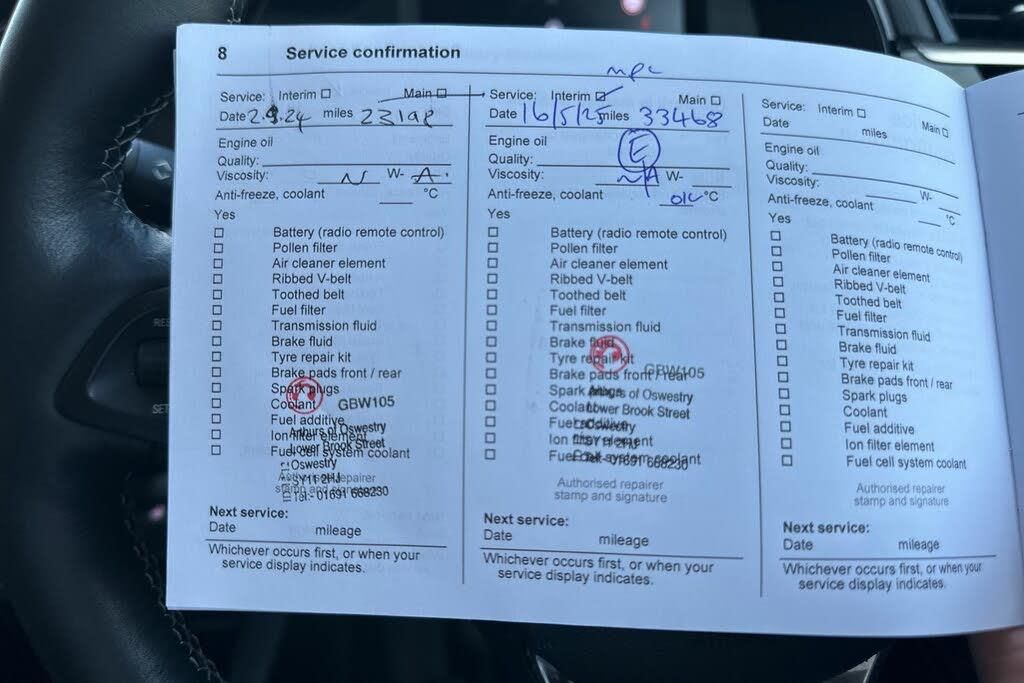 8 Service confirmation
mpc
Service: Interim Main
Date 2.9.24 miles 23198
Engine oil
Quality:
Viscosity: N W- A.
Anti-freeze, coolant °C
Yes
Battery (radio remote control)
Pollen filter
Air cleaner element
Ribbed V-belt
Toothed belt
Fuel filter
Transmission fluid
Brake fluid
Tyre repair kit
Brake pads front / rear
Spark plugs
Coolant
GBW105
Fuel additive
Arthurs of Oswestry
Ion filter element
Lower Brook Street
Fuel cell system coolant
Oswestry
SY11 2HJ
Authorised repairer
stamp and signature
Tel:- 01691 668230
Next service:
Date mileage
Whichever occurs first, or when your
service display indicates.
Service: Interim Main
Date 16/5/25 miles 33468
Engine oil
E
Quality:
Viscosity: N/A W-
Anti-freeze, coolant °C
Yes
Battery (radio remote control)
Pollen filter
Air cleaner element
Ribbed V-belt
Toothed belt
Fuel filter
Transmission fluid
Brake fluid
Tyre repair kit
Brake pads front / rear
GBW105
Spark plugs
Arthurs of Oswestry
Coolant
Lower Brook Street
Fuel additive
Oswestry
Ion filter element
SY11 2HJ
Fuel cell system coolant
Tel:- 01691 668230
Authorised repairer
stamp and signature
Next service:
Date mileage
Whichever occurs first, or when your
service display indicates.
Service: Interim Main
Date miles
Engine oil
Quality:
Viscosity: W-
Anti-freeze, coolant °C
Yes
Battery (radio remote control)
Pollen filter
Air cleaner element
Ribbed V-belt
Toothed belt
Fuel filter
Transmission fluid
Brake fluid
Tyre repair kit
Brake pads front / rear
Spark plugs
Coolant
Fuel additive
Ion filter element
Fuel cell system coolant
Authorised repairer
stamp and signature
Next service:
Date mileage
Whichever occurs first, or when your
service display indicates.
RES
SET